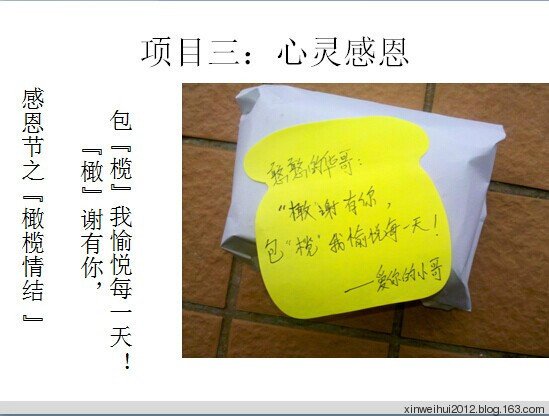 项目三：心灵感恩
感恩节之『橄榄情结』
『橄』谢有你，
包『榄』我愉悦每一天！
憨憨的华哥：
“橄”谢有你，
包“榄”我愉悦每一天！
——爱你的小哥
xinweihui2012.blog.163.com